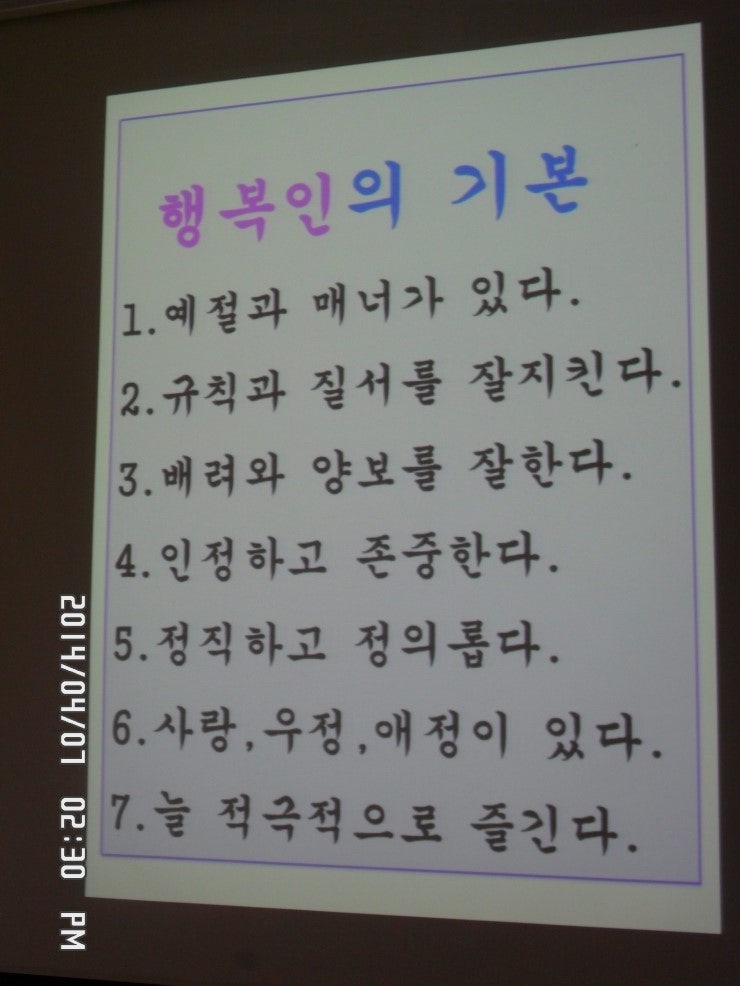 행복인의 기본
1.예절과 매너가 있다.
2.규칙과 질서를 잘지킨다.
3.배려와 양보를 잘한다.
4.인정하고 존중한다.
5.정직하고 정의롭다.
6.사랑,우정,애정이 있다.
7.늘 적극적으로 즐긴다.
2014/04/07 02:30 PM